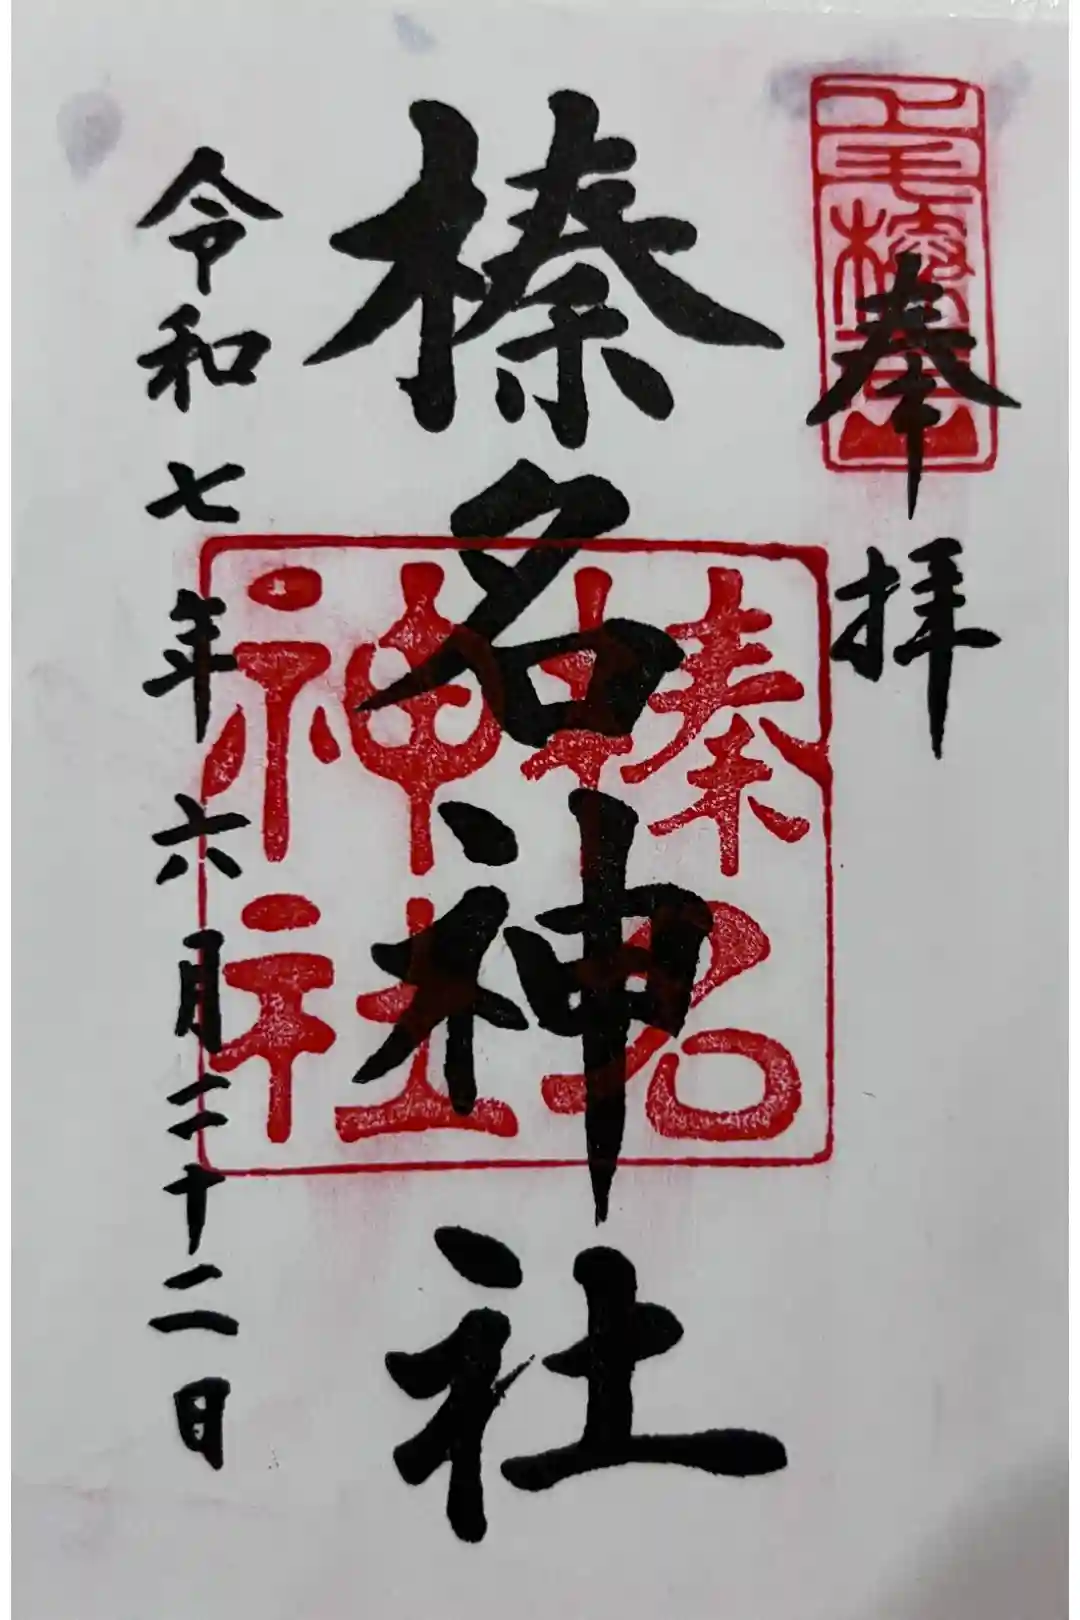 奉拝
上毛榛名山
榛名神社
榛名神社
令和七年六月二十二日